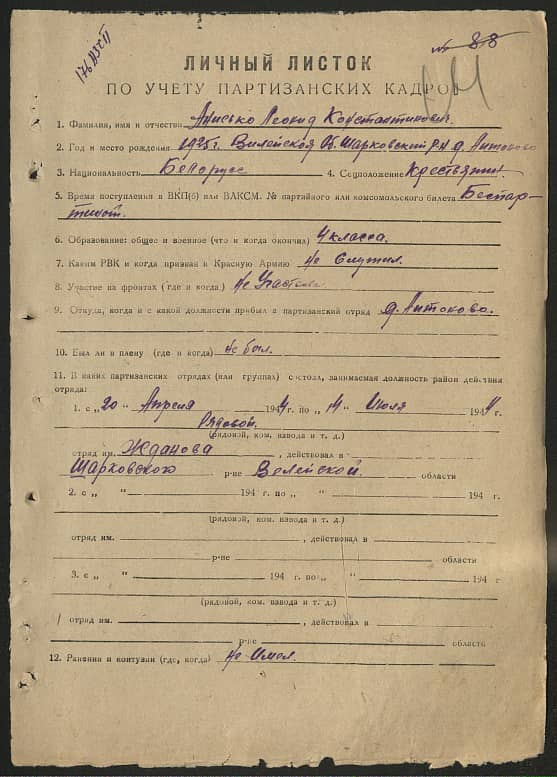 № 88
ЛИЧНЫЙ ЛИСТОК
ПО УЧЕТУ ПАРТИЗАНСКИХ КАДРОВ
1. Фамилия, имя и отчество Анисько Леонид Константинович.
2. Год и место рождения 1925 г. Вилейской Об. Шарковский р-н д. Литоково
3. Национальность Белорусс 4. Соцположение Крестьянин.
5. Время поступления в ВКП(б) или ВЛКСМ. № партийного или комсомольского билета Беспар-
тийный.
6. Образование: общее и военное (что и когда окончил) 4 класса.
7. Каким РВК и когда призван в Красную Армию Не служил.
8. Участие на фронтах (где и когда) Не
9. Откуда, когда и с какой должности прибыл в партизанский отряд д. Литоково.
10. Был ли в плену (где и когда) не был.
11. В каких партизанских отрядах (или группах) состоял, занимаемая должность район действия
отряда:
1. с „20 “ Апреля 1944 г. по „14 “ Июля 1944 г.
Рядовой.
(рядовой, ком. взвода и т. д.)
отряд им. Жданова , действовал в
Шарковского р-не Велейской. области
2. с „ “ 194 г. по „ “ 194 г.
(рядовой, ком. взвода и т. д.)
отряд им. , действовал в
р-не области
3. с „ “ 194 г по „ “ 194 г
(рядовой, ком. взвода и т. д.)
отряд им. , действовал в
р-не область
12. Ранения и контузии (где, когда) Не имел.